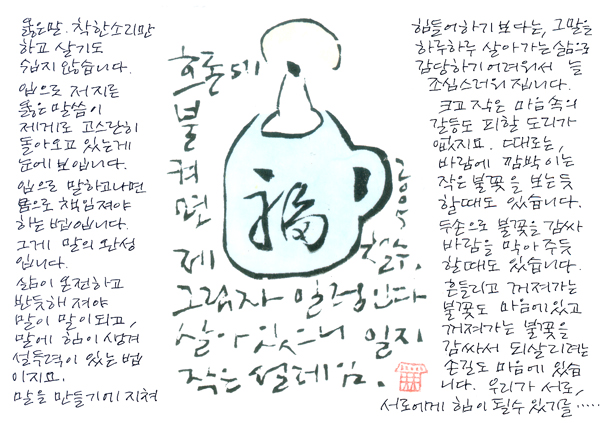 옳은말. 착한소리만
하고 살기도
쉽지 않습니다.
입으로 저지른
옳은 말씀이
제게로 고스란히
돌아오고 있는게
눈에 보입니다.
입으로 말하고나면
몸으로 책임져야
하는 법입니다.
그게 말의 완성
입니다.
삶이 온전하고
반듯해 져야
말이 말이 되고,
말에 힘이 생겨
설득력이 있는 법
이지요.
말을 만들기에 지쳐
흐린
불
켜면
제
그림자 일렁인다
살아 있으니 일지
작은 설레임.
福
2005
철수.
힘들어하기 보다는, 그말을
하루하루 살아가는 삶으로
감당하기 어려워서 늘
조심스러워 집니다.
크고 작은 마음속의
갈등도 피할 도리가
없지요. 때로는,
바람에 깜박이는
작은 불꽃을 보는듯
할때도 있습니다.
두손으로 불꽃을 감싸
바람을 막아 주듯
할때도 있습니다.
흔들리고 꺼져가는
불꽃도 마음에있고
꺼져가는 불꽃을
감싸서 되살리려는
손길도 마음에 있습
니다. 우리가 서로,
서로에게 힘이 될수 있기를.....